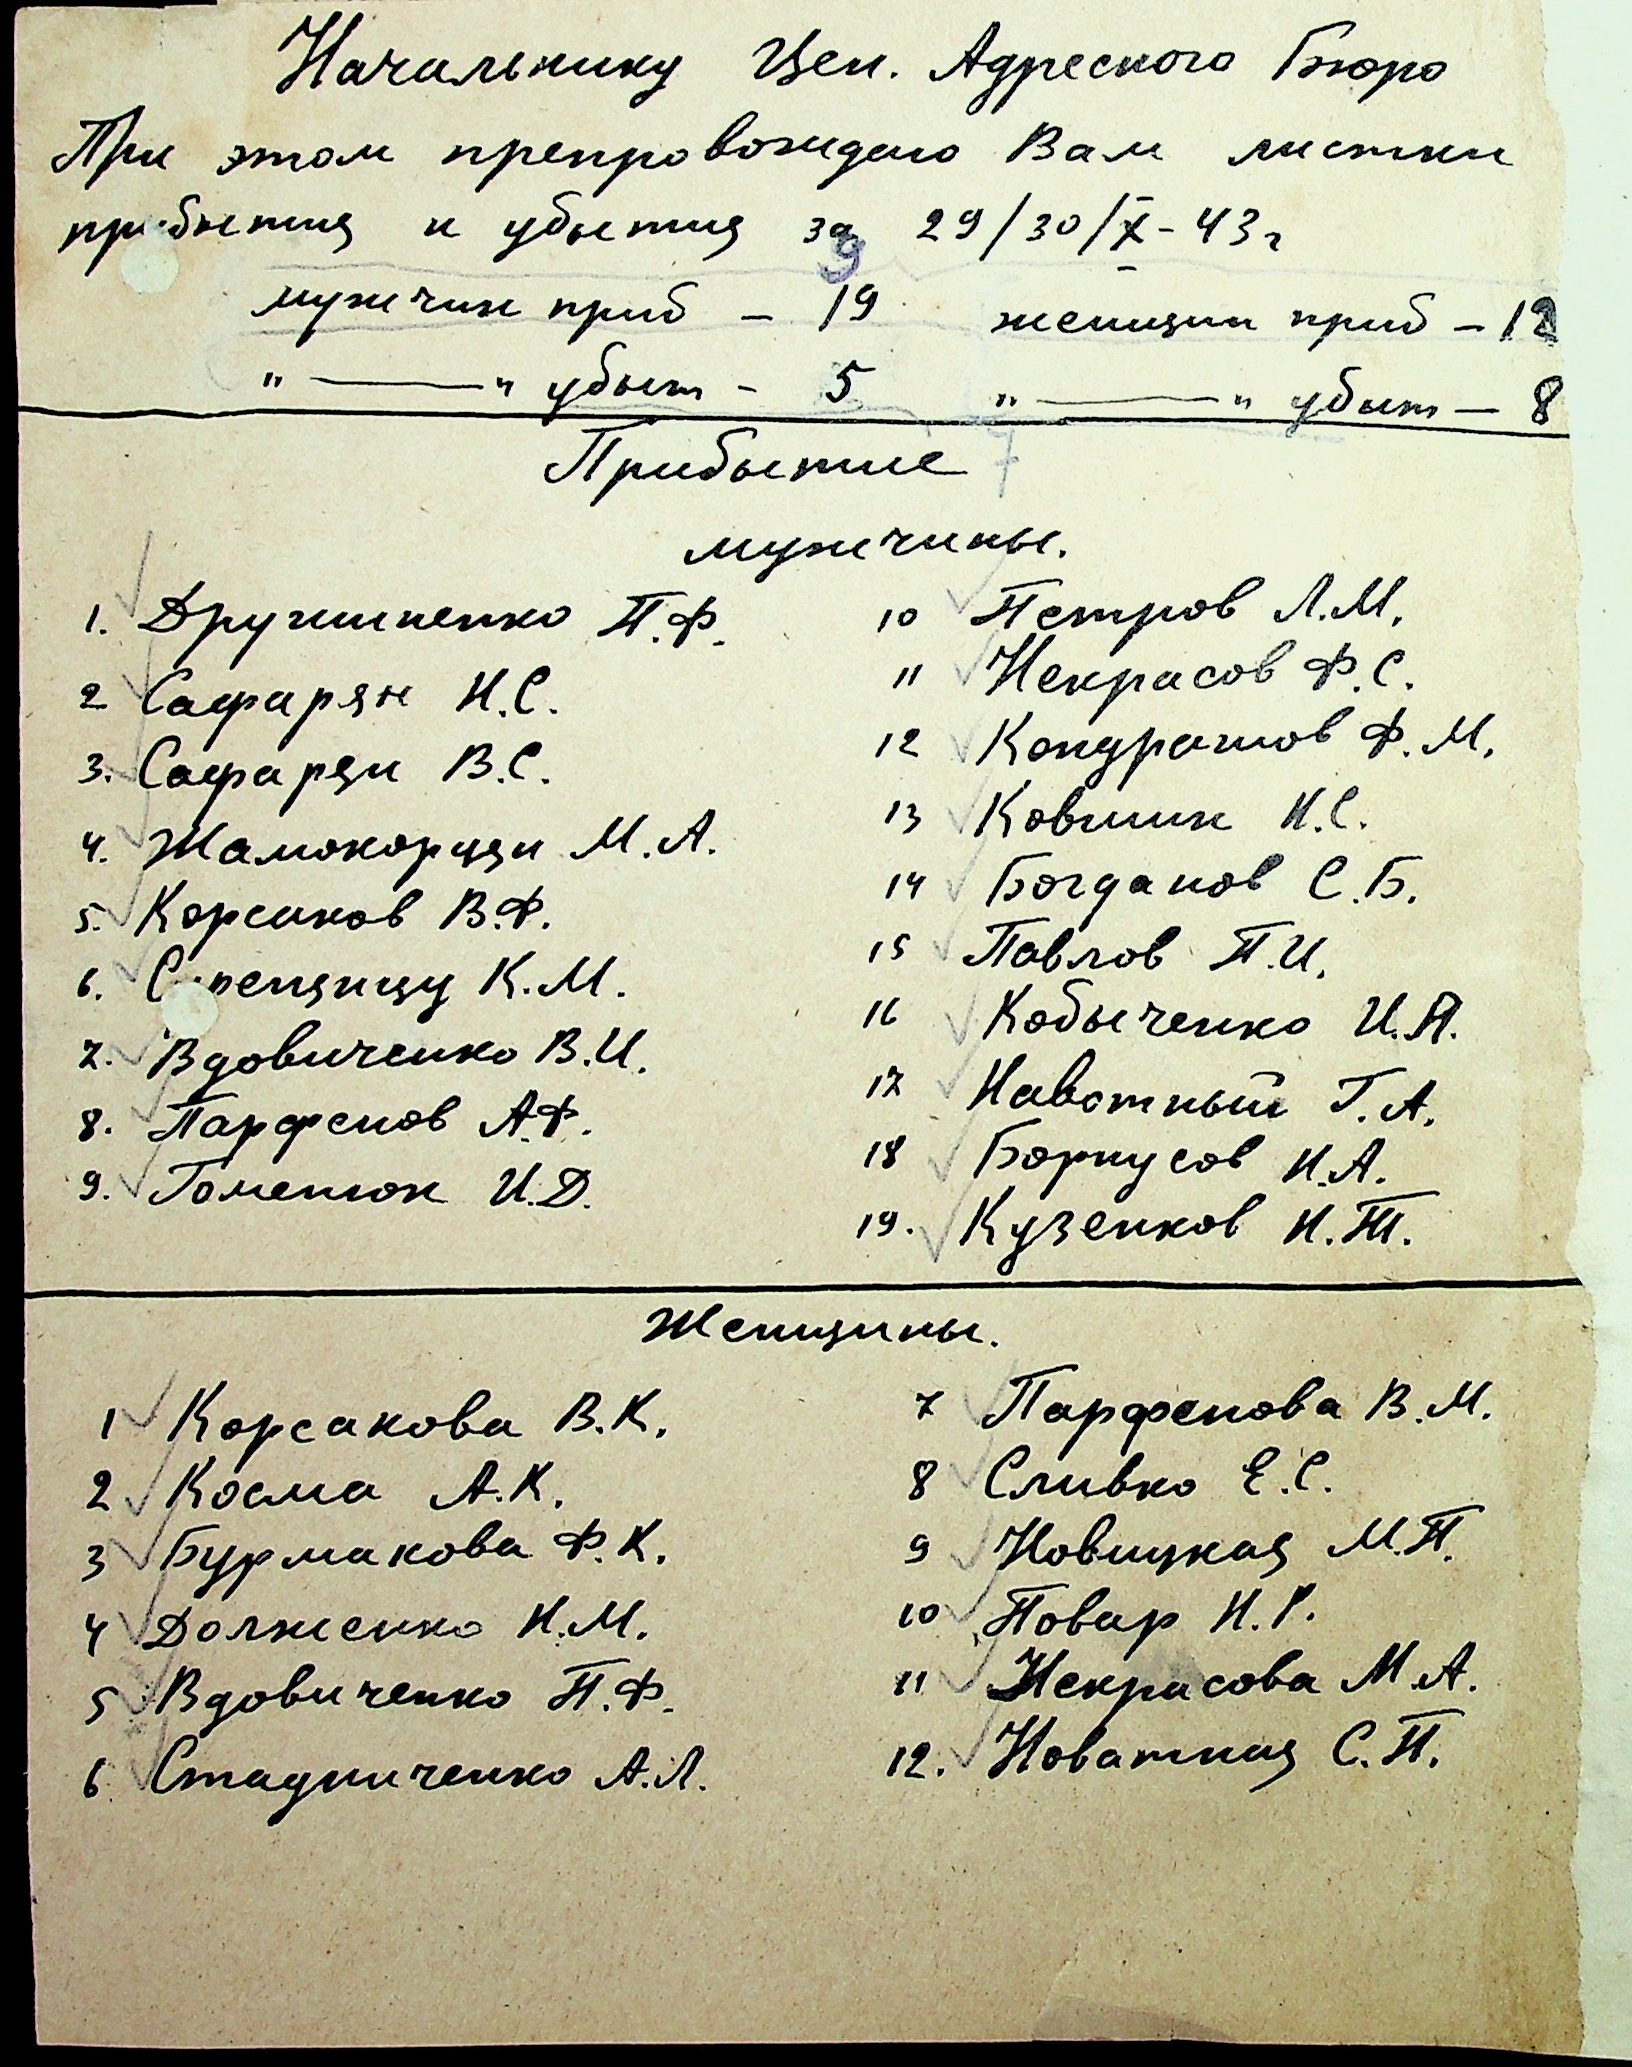 Начальнику Цен. Адресного Бюро
При этом препровождаю Вам листки
прибытия и убытия за 29/30/X-43г
9
мужчин приб - 19 женщин приб - 12
" —— " убыт - 5 " —— " убыт - 8
7
Прибытие
мужчины.
1. Дружиненко П.Ф.
2 Сафарян Н.С.
3. Сафарян В.С.
4. Жамокорцян М.А.
5. Корсиков В.Ф.
6. К.М.
7. Вдовиченко В.И.
8. Парфенов А.Ф.
9. Гоменюк И.Д.
10 Петров Л.М.
11 Некрасов Ф.С.
12 Кондрашов Ф.М.
13 Ковшик Н.С.
14 Богданов С.Б.
15 Павлов П.И.
16 Кобыченко И.Я.
17 Навотный Г.А.
18 Борнусов Н.А.
19. Кузенков Н.Т.
Женщины.
1 Корсакова В.К.
2 Косма А.К.
3 Бурмакова Ф.К.
4 Долженко Н.М.
5 Вдовиченко П.Ф.
6 Стадниченко А.Л.
7 Парфенова В.М.
8 Сливко Е.С.
9 Новицкая М.П.
10 Повар Н.Р.
11 Некрасова М.А.
12. Новатная С.П.